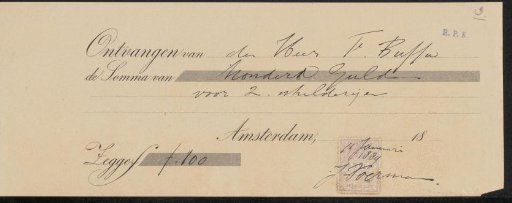 3
R.P.K.
Ontvangen van den Heer F. Buffa
de Somma van Honderd Guld
voor 2 schilderijen
Amsterdam, 18
14 Januari
1884
Zegge f f. 100
J. Voerman.